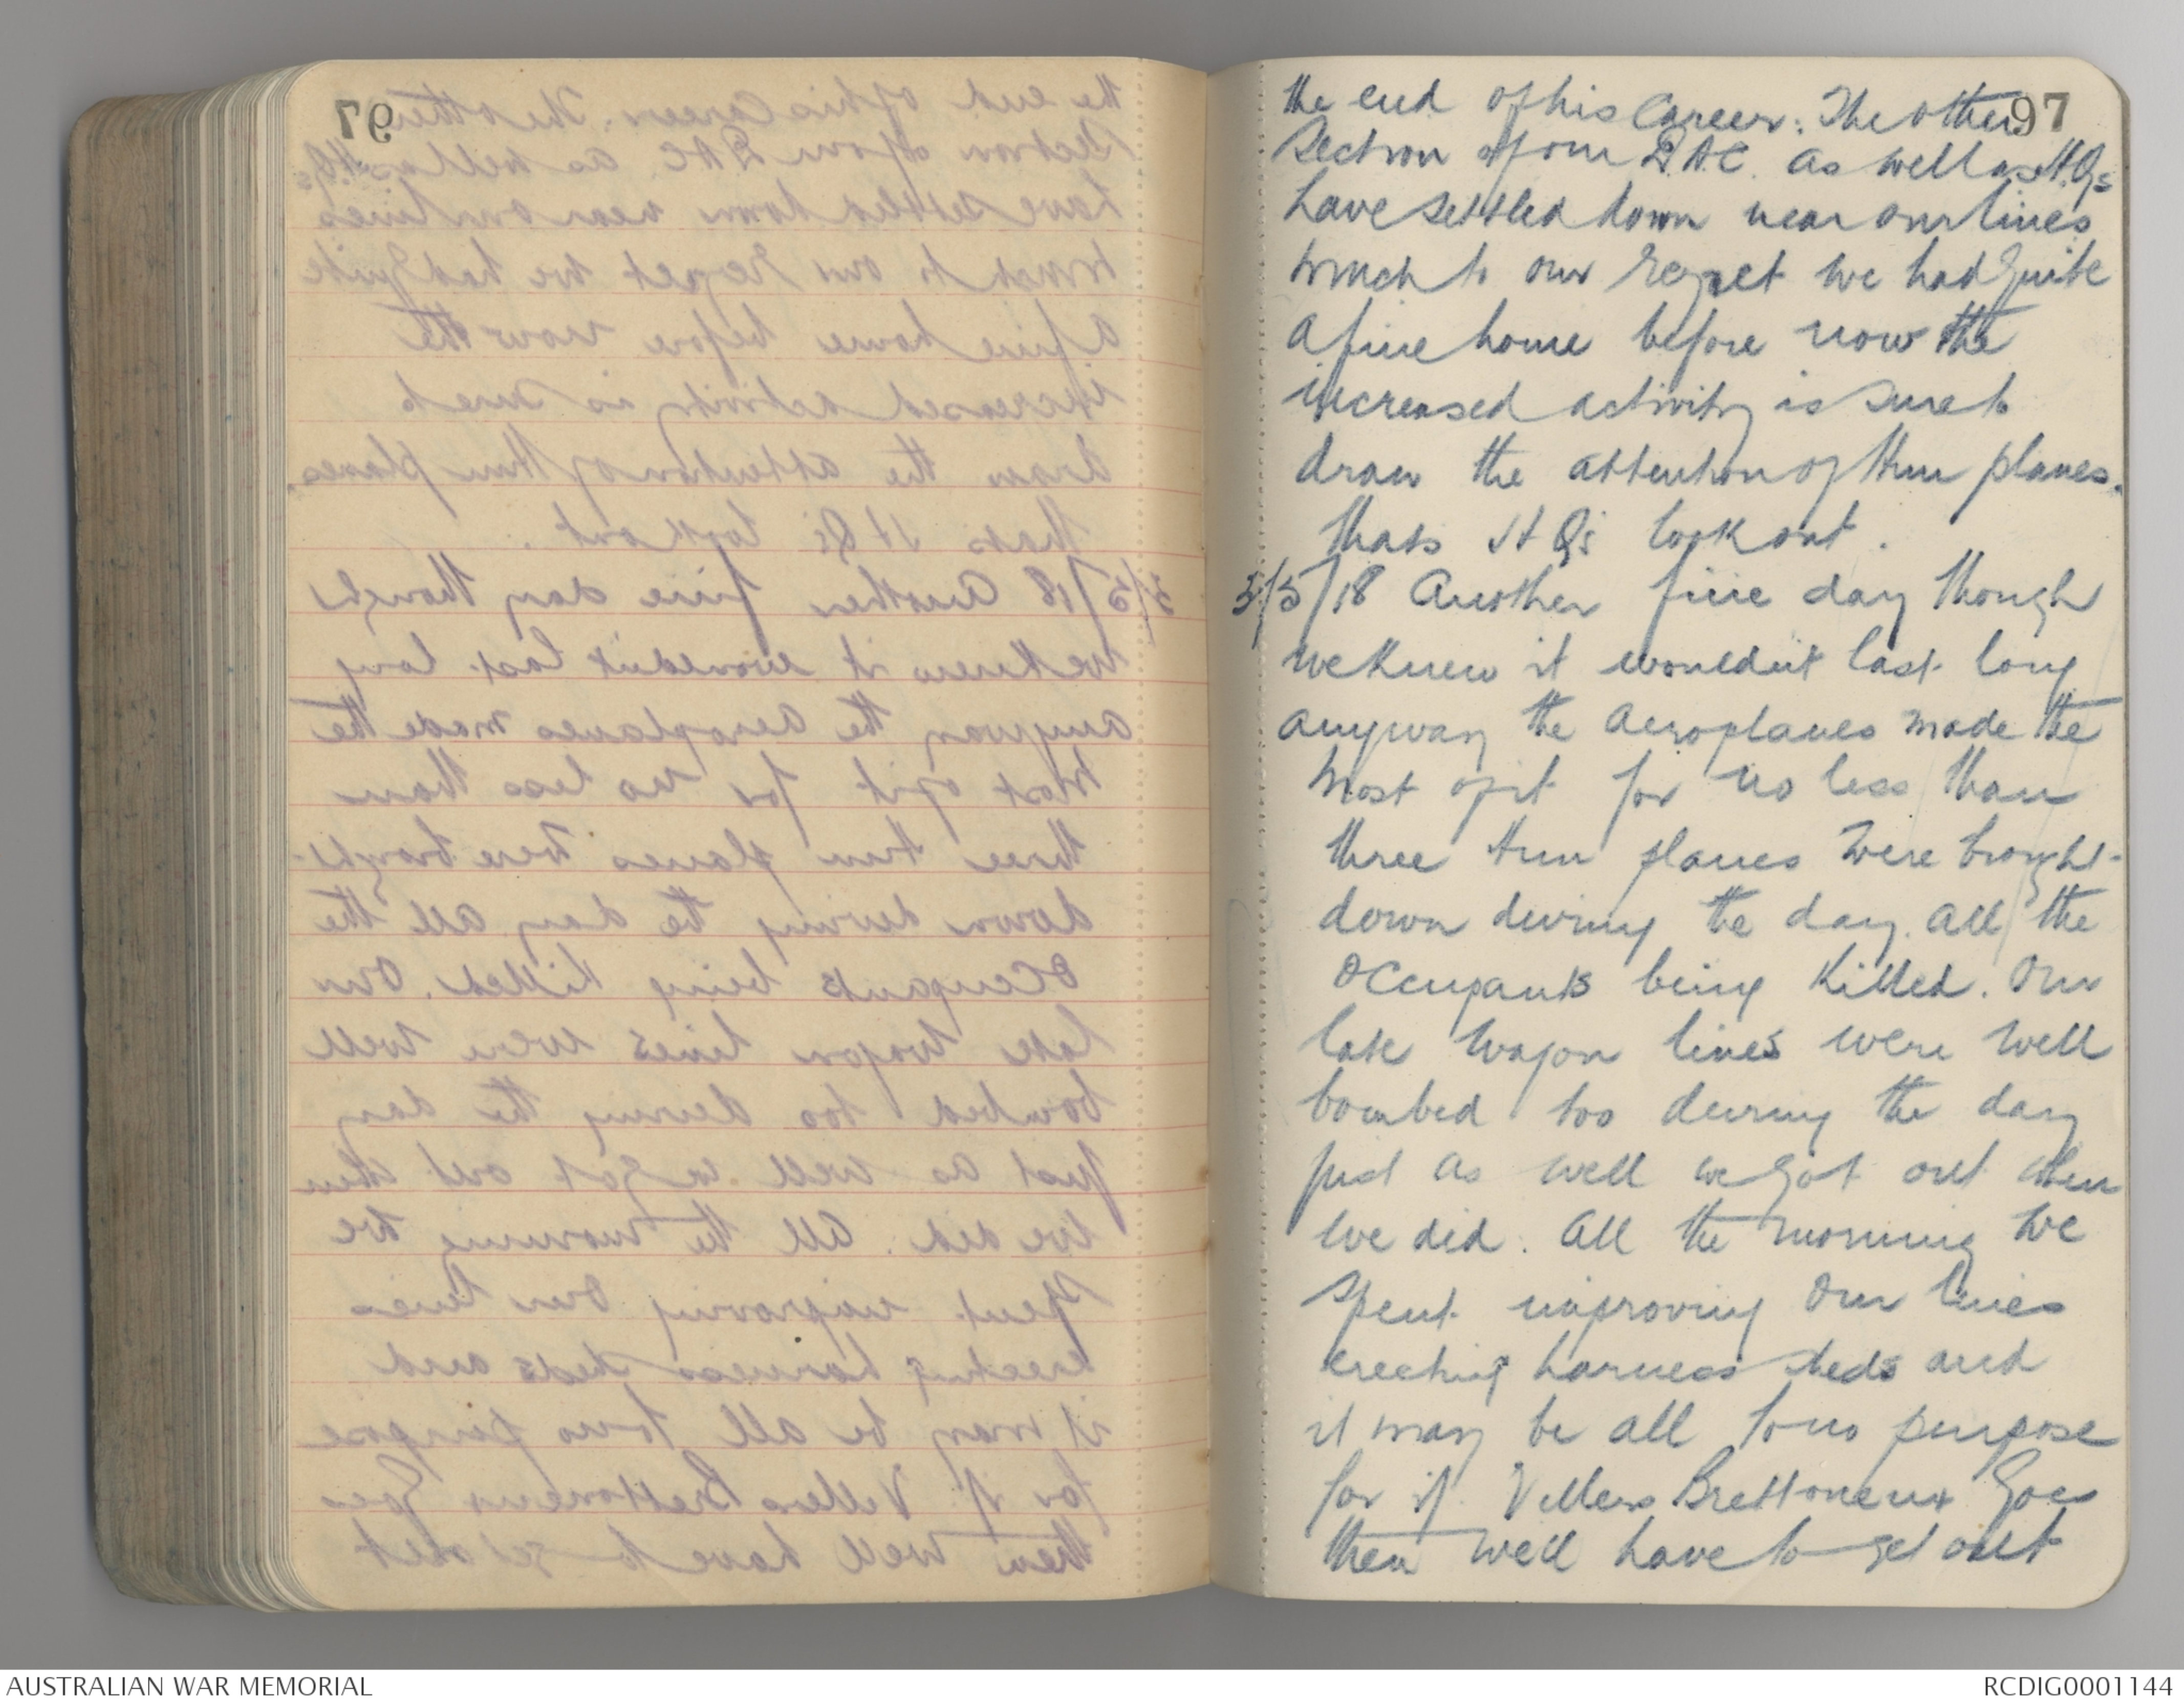 97
the end of his Career. The other
Section of our D.A.C. as well as H.Qs
have settled down near our lines
much to our regret we had quite
a fine home before now the
increased activity is sure to
draw the attention of Hun planes.
thats H Qs lookout.
3/5/18 Another fine day though
we knew it wouldnt last long
anyway the aeroplanes made the
most of it for no less than
three Hun planes were brought
down during the day. all the
Occupants being killed. Our
late wagon lines were well
bombed too during the day
just as well we got out when
we did. All the morning we
spent improving our lines
erecting harness sheds and
it may be all to no purpose
for if Villers Brettoneux goes
then well have to get out
AUSTRALIAN WAR MEMORIAL
RCDIG0001144